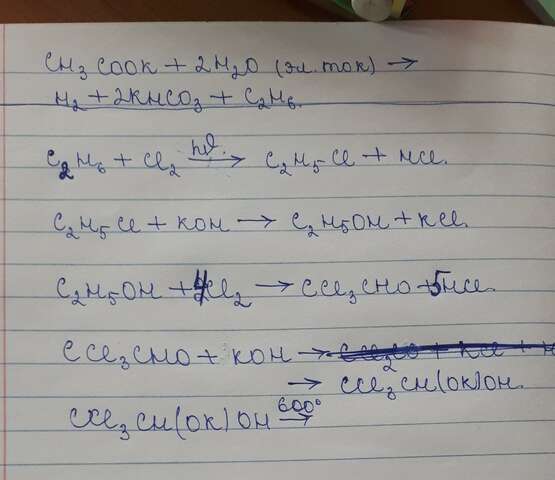 CH₃COOK + 2H₂O (эл.ток) →
H₂ + 2KHCO₃ + C₂H₆.
C₂H₆ + Cl₂ —hν→ C₂H₅Cl + HCl.
C₂H₅Cl + KOH → C₂H₅OH + KCl.
C₂H₅OH + 4Cl₂ → CCl₃CHO + 5HCl.
CCl₃CHO + KOH →
→ CCl₃CH(OK)OH.
CCl₃CH(OK)OH —600°→